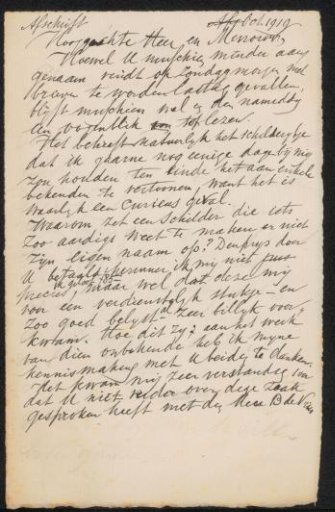 Afschrift Oct. 1919
Hooggeachte Heer en Mevrouw,
Hoewel U misschien minder aan-
genaam vindt op Zondagmorgen met
brieven te worden lastig gevallen,
blijft misschien wel er den namiddag
een oogenblik om te lezen.
Het betreft natuurlijk het schilderijtje
dat ik gaarne nog eenige dagen bij mij
zou houden ten einde het aan enkele
bekenden te vertoonen, want het is
waarlijk een curieus geval.
Waarom zet een Schilder die iets
zoo aardigs weet te maken er niet
zijn eigen naam op? Den prijs door
U betaald herinner ik mij niet juist
maar wel dat deze mij
voor een verdienstelijk stukje en
zoo goed belijst zeer billijk voor-
kwam. Hoe dit zij: aan het werk
van dien onbekende heb ik mijne
kennismaking met U beiden te danken.
Het kwam mij zeer verstandig voor
dat U niet verder over deze zaak
gesproken heeft met den Heer B de